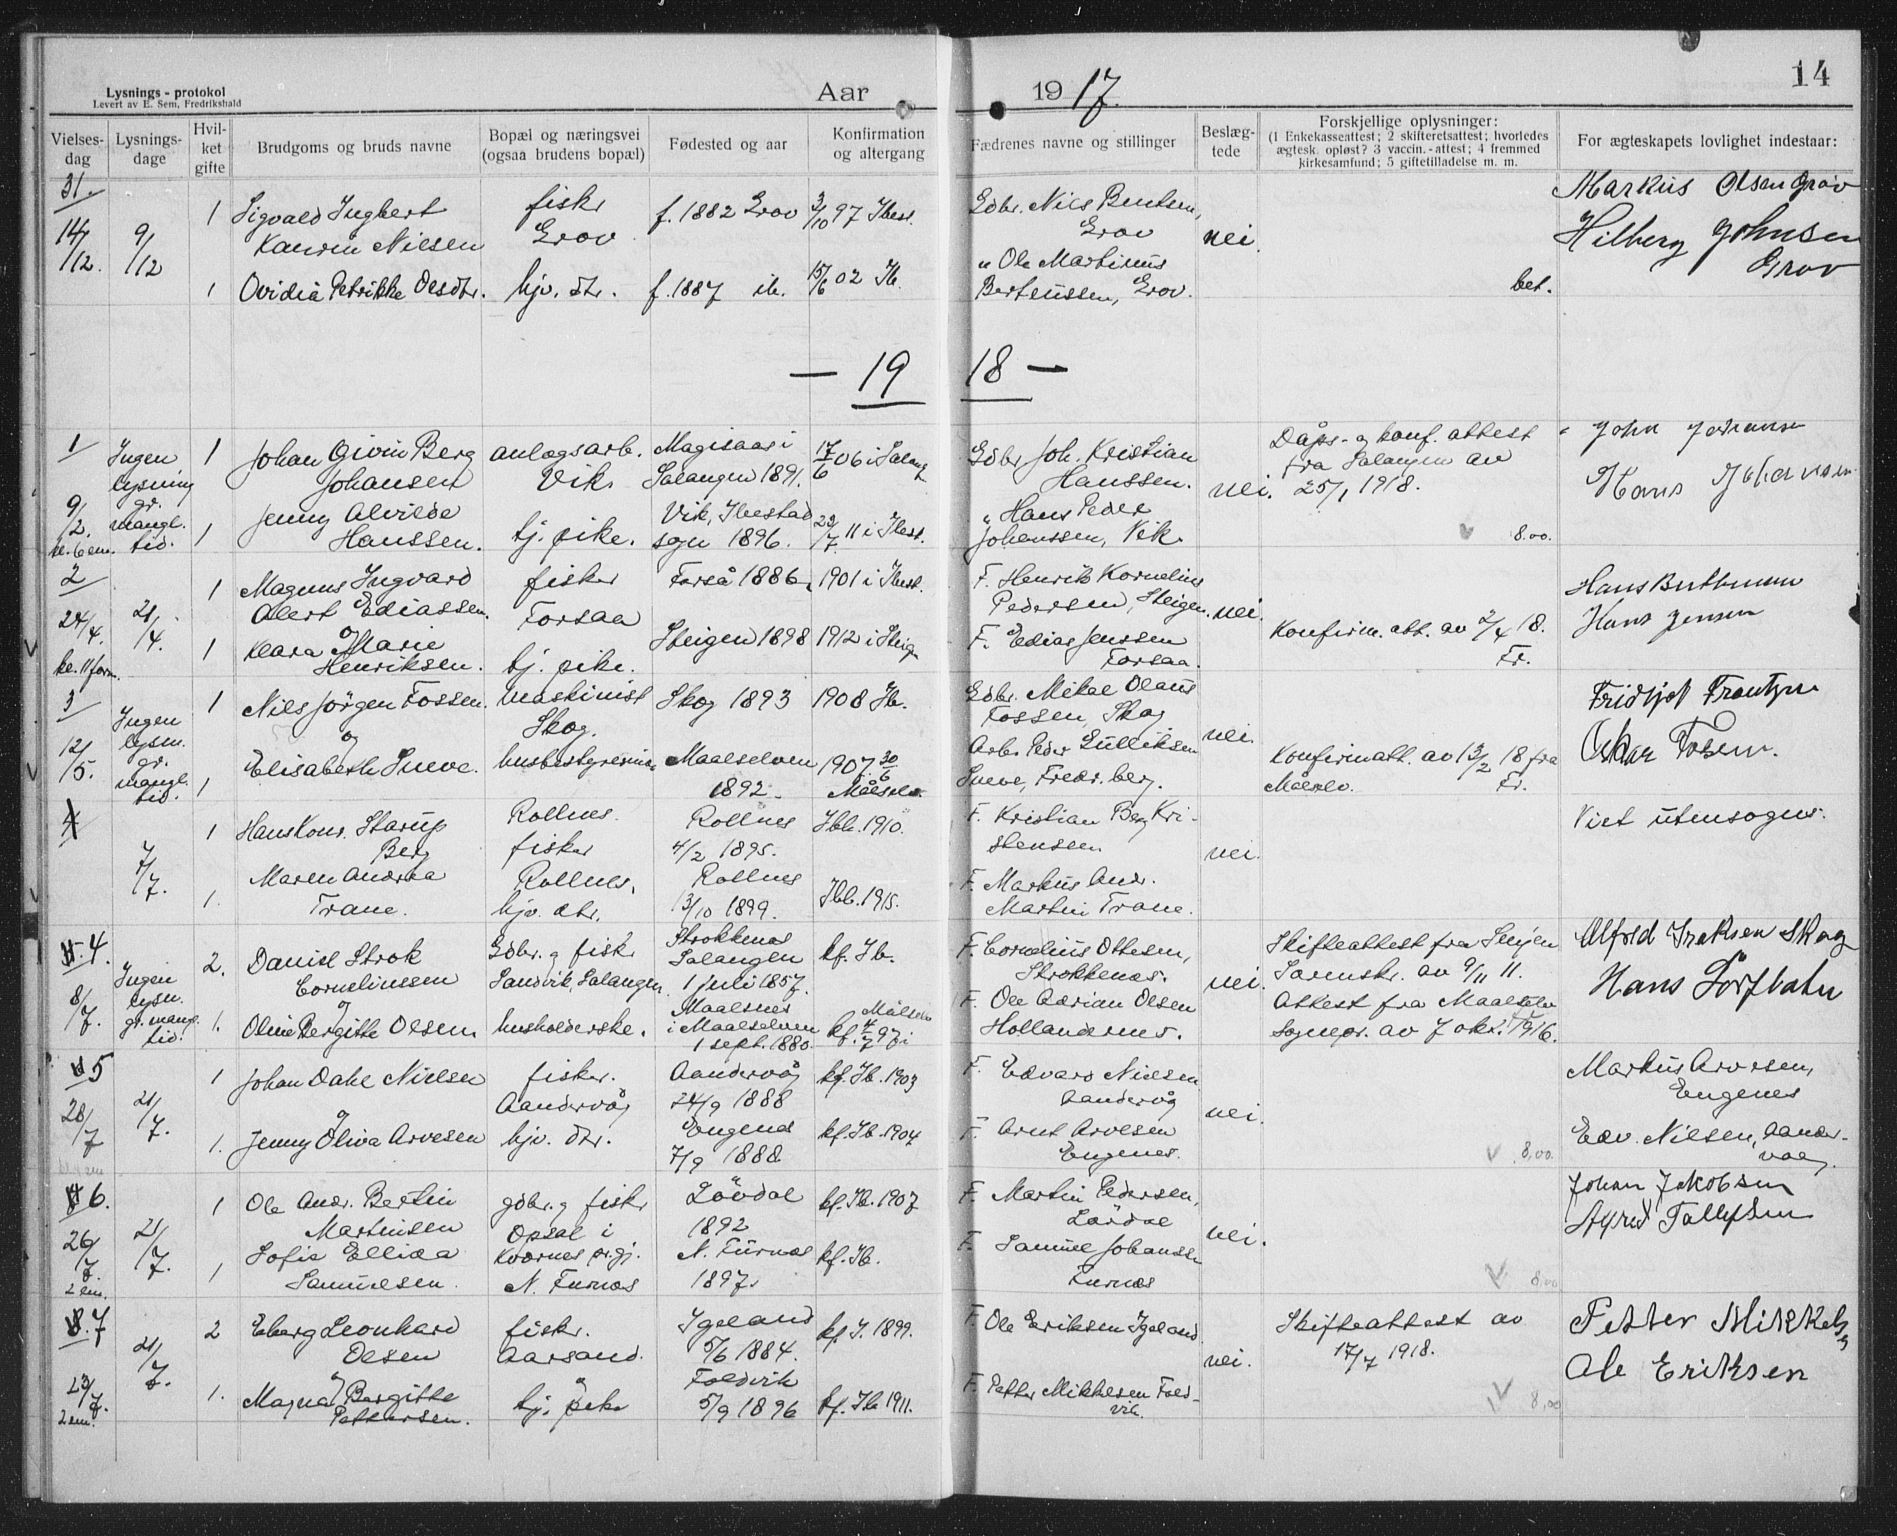 Lysnings - protokol
Levert av E. Sem, Fredrikshald
Aar 1917.
14
Vielses-dag
Lysnings-dage
Hvil-ket gifte
Brudgoms og bruds navne
Bopæl og næringsvei (ogsaa brudens bopæl)
Fødested og aar
Konfirmation og altergang
Fædrenes navne og stillinger
Beslæg-tede
Forskjellige oplysninger:
(1 Enkekasseattest; 2 skifteretsattest; hvorledes
ægtesk. opløst? 3 vaccin.-attest; 4 fremmed
kirkesamfund; 5 giftetilladelse m. m.
For ægteskapets lovlighet indestaar:
31.
14/12. 9/12
1 Sigvald Ingbert
Nielsen
fisker
Grov
f. 1882 Grov
3/10 97 Ibest.
Gdbr. Nils Bentsen,
Grov
nei.
1 Ovidia Petrikke Olsdtr.
hjv. dtr.
f. 1887 ib.
15/6 02 Ib.
" Ole Martinus
Berteussen, Grov.
bet.
Markus Olsen Grov
Hilberg Johnsen
Grov
— 19 18 —
1
9/2.
kl. 6 em.
Ingen
lysning
gr.
mangl.
tid.
1 Johan Berg
Johansen
anlægsarb.
Vik
i
Salangen 1891.
17/6 06 i Salang
Gdbr. Joh. Kristian
Hanssen.
nei.
Dåps- og konf. attest
fra Salangen av
25/1 1918.
8.00.
John Johansen
Hans Johanssen
1 Jenny Alvilde
Hanssen.
tj. pike.
Vik, Ibestad
sogn 1896.
22/7 11 i Ibest.
" Hans Peder
Johanssen, Vik.
2
24/4.
kl. 11 form.
21/4.
1 Magnus Ingvard
Albert Ediassen.
fisker
Forsaa
Forså 1886
1901 i Ibest.
F. Henrik Kornelius
Pedersen, Steigen.
nei.
Konfirm. att. av 2/4 18.
Fr.
Hans Jensen
og
1 Klara Marie
Henriksen.
tj. pike.
Steigen 1898
1912 i Steig.
F. Edias Jenssen
Forsaa.
3
12/5.
Ingen
lysn.
gr.
mangl.
tid.
1 Nils Jörgen Fossen.
maskinist
Skog.
Skog 1893
1908 Ib.
Gdbr. Mikal Olaus
Fossen, Skog
nei.
Konfirm att. av 13/2 18 fra
Målselv. Fr.
Fridtjof Frantzen
Oskar Fossen.
og
1 Elisabeth Sneve.
husbestyrerinne
Maalselven
1892.
1907 30/6
Målselv.
Arb. Peder Gulliksen
Sneve, Fredr. berg.
4
7/7.
1 Hans Konr. Starup
Berg
Rollnes.
fisker
Rollnes
4/2 1895.
Ibb. 1910.
F. Kristian Berg Kri-
stenssen
nei.
Viet utensogns.
1. Maren Andrea
Trane.
Rollnes.
hjv. dtr.
Rollnes
13/10 1899.
Ibb. 1915.
F. Markus Andr.
Martin Trane.
4.
8/7.
Ingen
lysn.
gr. mangl.
tid.
2. Daniel Strok
Corneliussen
Gdbr. og fisker
Sandvik, Salangen.
Strokkenæs
Salangen
1 juli 1857.
kf. Ib.
F. Cornelius Ottesen,
Strokkenæs.
nei.
Skifteattest fra Senjen
Sorenskr. av 9/11 11.
Attest fra Maalselv
Sognepr. av 7 okt. 1916.
Alfred Iraksen Skog
Hans
og
1. Oline Bergitte Olsen
husholderske.
Maalsnes
i Maalselven
1 sept. 1880.
kf. 4/7 97 i
Målselv
F. Ole Adrian Olsen
Hollandernes.
5
28/7
21/7.
1 Johan Dahl Nielsen
fisker.
Aandervåg
Aandervåg
24/9 1888
kf. Ib. 1903
F. Edvard Nielsen
Aandervåg
nei.
8,00.
Markus Arvesen,
Engenes
Edv. Nielsen, Aander-
vaag
og
1. Jenny Oliva Arvesen
hjv. dtr.
Engenes
7/9 1888.
kf. Ib. 1904
F. Arnt Arvesen
Engenes.
6.
26/7.
2 em.
21/7.
1 Ole Andr. Bertin
Martinsen
gdbr. og fisker
Opsal i
Kværnes prgj.
Lövdal
1892
kf. Ib. 1907
F. Martin Pedersen,
Lövdal
nei.
8,00
Johan Jakobsen
1 Sofie Ellida
Samuelsen.
N. Furnæs
N. Furnæs
1897.
kf. Ib.
F. Samuel Johanssen
Furnæs
7
23/7.
2 em.
21/7.
2 Eberg Leonhard
Olsen
fisker.
Aarsand.
Igeland
5/6 1884.
kf. I. 1899.
F. Ole Eriksen Igeland
nei.
Skifteattest av
17/7 1918.
8,00
Petter Mikkelsen
Ole Eriksen
og
1. Magna Bergitte
Pettersen.
tj. pike
Foldvik
5/9 1896
kf. Ib 1911.
F. Petter Mikkelsen Fold-
vik.